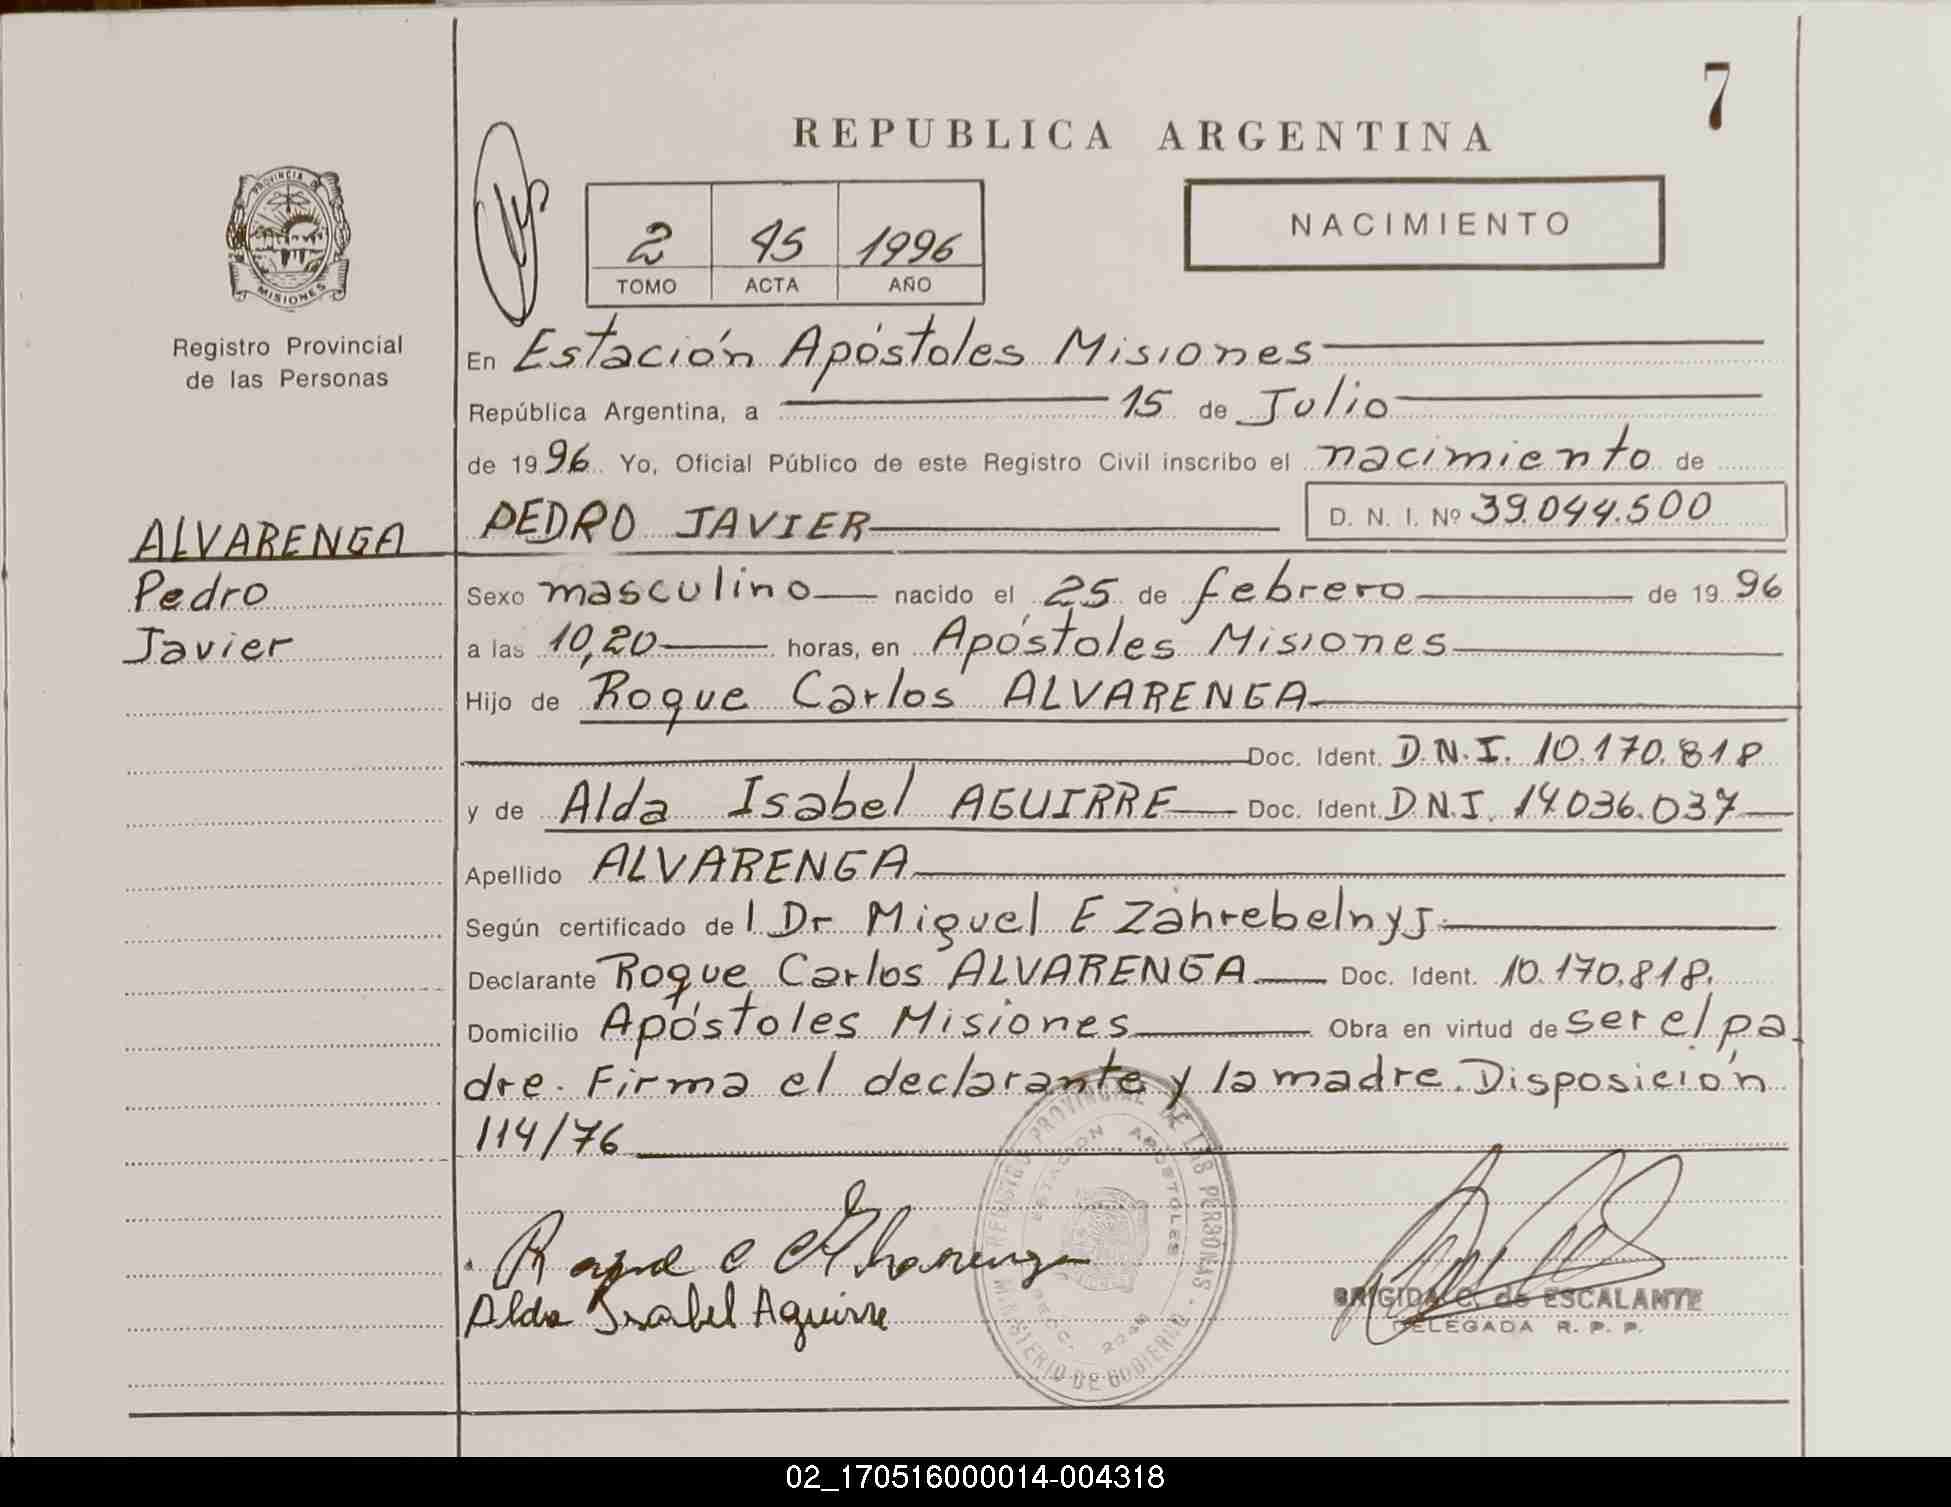 7
REPUBLICA ARGENTINA
NACIMIENTO
PROVINCIA DE
MISIONES
Registro Provincial
de las Personas
2 45 1996
TOMO ACTA AÑO
En Estación Apóstoles Misiones
República Argentina, a 15 de Julio
de 1996 Yo, Oficial Público de este Registro Civil inscribo el nacimiento de
PEDRO JAVIER D. N. I. Nº 39.044.500
ALVARENGA
Pedro
Javier
Sexo masculino nacido el 25 de febrero de 1996
a las 10,20 horas, en Apóstoles Misiones
Hijo de Roque Carlos ALVARENGA
Doc. Ident. D.N.I. 10.170.818
y de Alda Isabel AGUIRRE Doc. Ident. D.N.I. 14.036.037
Apellido ALVARENGA
Según certificado del Dr Miguel E Zahrebelnyj
Declarante Roque Carlos ALVARENGA Doc. Ident. 10.170.818.
Domicilio Apóstoles Misiones Obra en virtud de ser el pa
dre. Firma el declarante y la madre. Disposición
114/76
REGISTRO PROVINCIAL DE LAS PERSONAS - MINISTERIO DE GOBIERNO
ESTACION APOSTOLES
SECC. 2248
Roque C Alvarenga
Alda Isabel Aguirre
BRIGIDA C. de ESCALANTE
DELEGADA R. P. P.
02_170516000014-004318